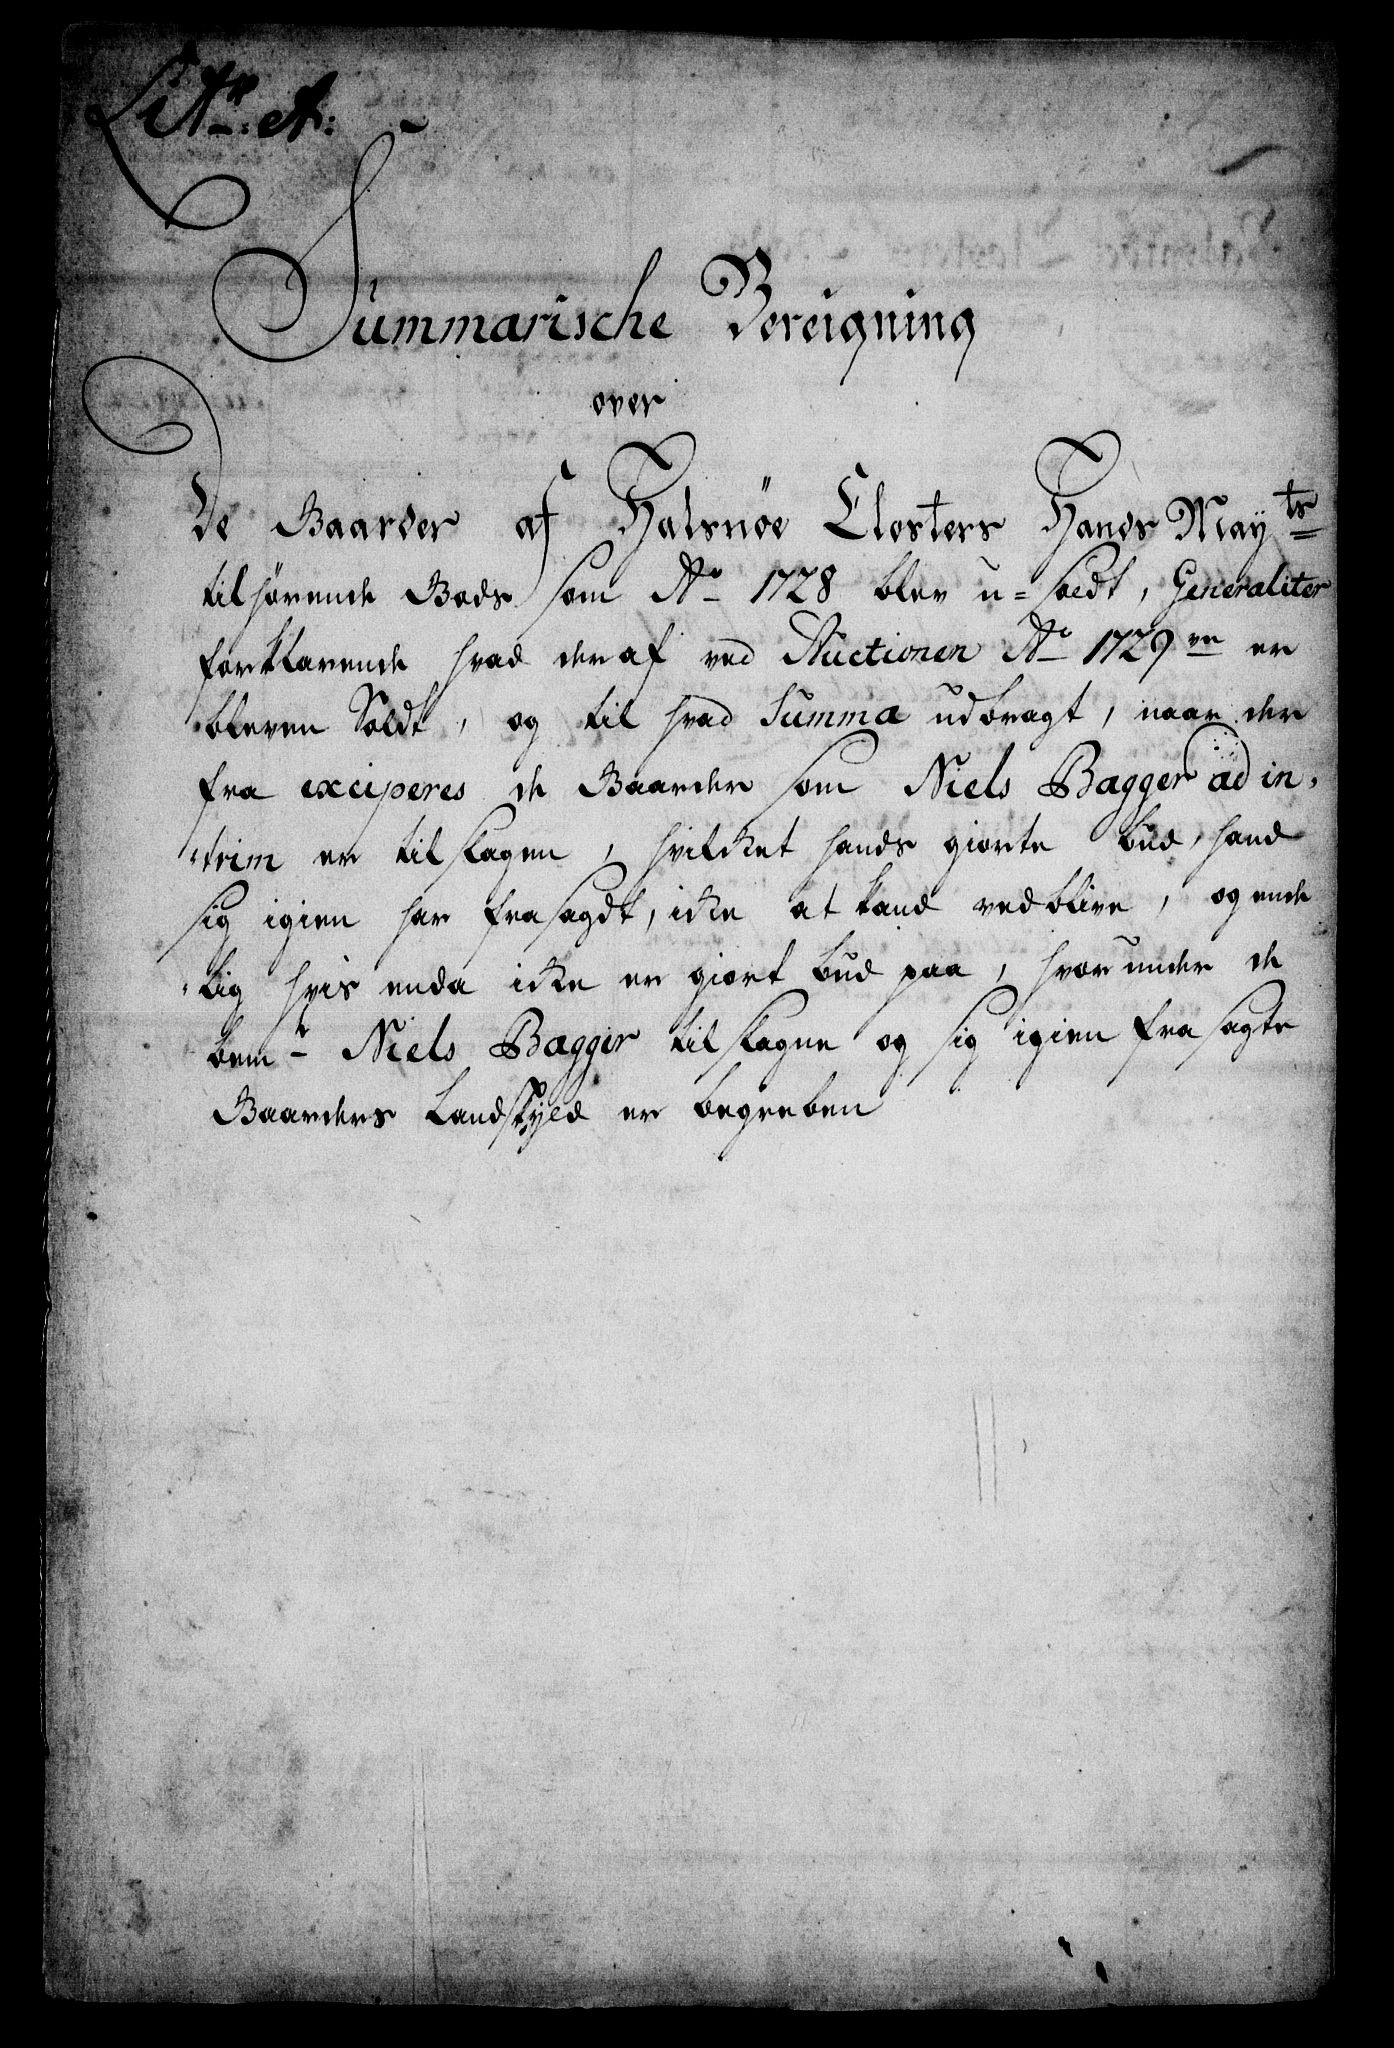 Litr: A:
Summarische Bereigning
over
De Gaarder af Halsnøe Closters Hands Mayts
tilhørende Gods som Ao 1728 blev u-soldt, Generaliter
forklarende hvad deraf ved Auctionen Ao 1729 er
bleven Soldt, og til hvad Summa udbragt, naar der
fra exciperes de Gaarder som Niels Bagger ad in,
,trim er tilslagen, hvilcket hands giorte bud, hand
sig igien har frasagdt, icke at kand vedblive, og ende
,lig hvis enda icke er giort bud paa, hvorunder de
bemte Niels Bagger tilslagne og sig igien frasagte
Gaarders Landskyld er begreben